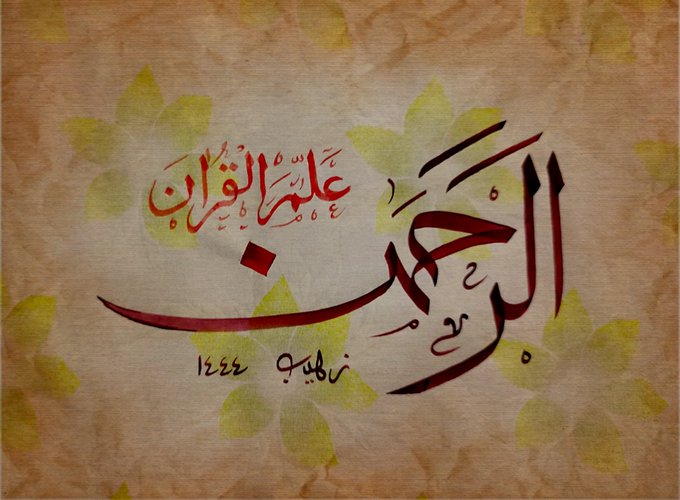 الرَحمَن
عَلَّمَ القُرانَ
زهيب ١٤٤٤